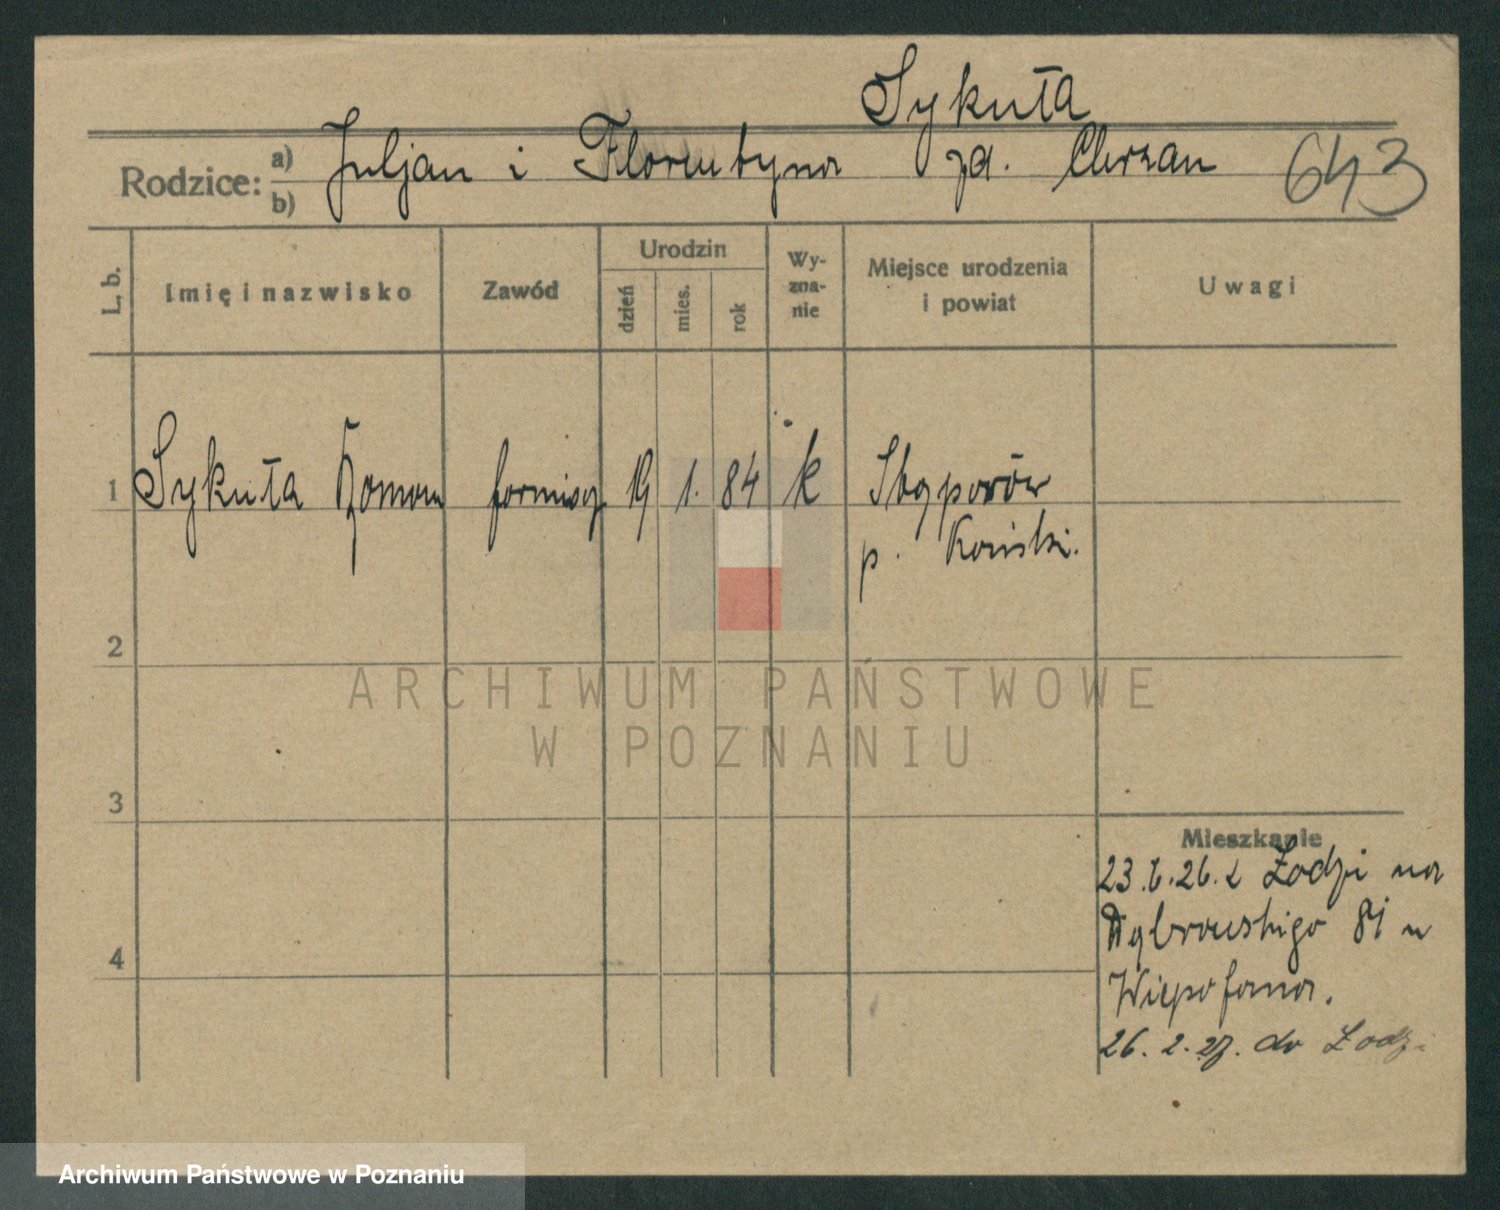 Sykuła
Rodzice: a) b) Juljan i Florentyna zd. Chrzan 643
L. b. Imię i nazwisko Zawód Urodzin dzień mies. rok Wy-zna-nie Miejsce urodzenia i powiat Uwagi
1 Sykuła Roman 19 1. 84 k
p. Koński.
2
ARCHIWUM PAŃSTWOWE
W POZNANIU
3
Mieszkanie
23.6.26. z Łodzi na
4 Dąbrowskiego 81 u
26. 2. 27. do Łodzi
Archiwum Państwowe w Poznaniu